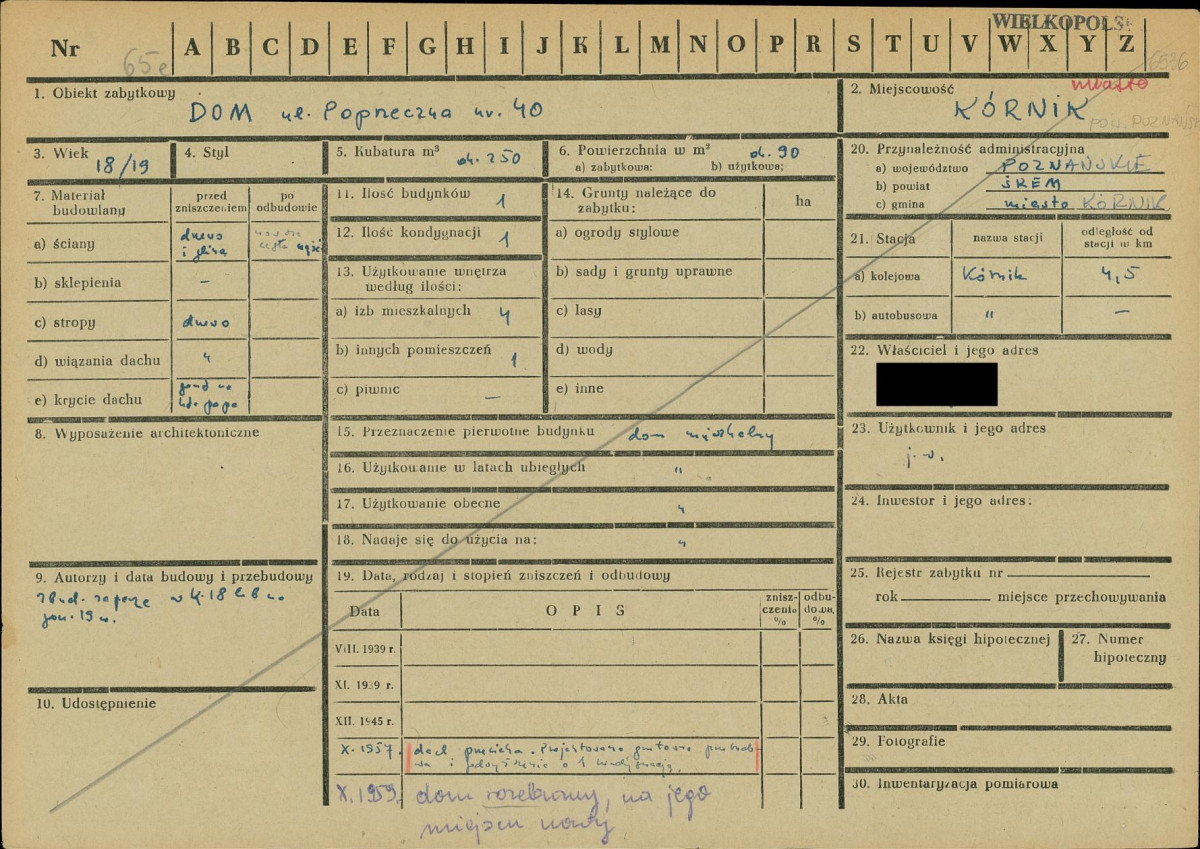 WIELKOPOLS
Nr 65e A B C D E F G H I J K L M N O P R S T U V W X Y Z
6936
1. Obiekt zabytkowy
DOM ul. Poprzeczna nr. 40
2. Miejscowość miasto
KÓRNIK
pow. POZNAŃSK
3. Wiek
18/19
4. Styl
5. Kubatura m³
ok. 250
6. Powierzchnia w m²
ok. 90
a) zabytkowa: b) użytkowa:
20. Przynależność administracyjna
a) województwo POZNAŃSKIE
b) powiat ŚREM
c) gmina miasto KÓRNIK
7. Materiał budowlany
przed zniszczeniem
po odbudowie
a) ściany drewo i glina
b) sklepienia –
c) stropy drewo
d) wiązania dachu "
e) krycie dachu papa
11. Ilość budynków 1
12. Ilość kondygnacji 1
13. Użytkowanie wnętrza
według ilości:
a) izb mieszkalnych 4
b) innych pomieszczeń 1
c) piwnic –
14. Grunty należące do
zabytku: ha
a) ogrody stylowe
b) sady i grunty uprawne
c) lasy
d) wody
e) inne
21. Stacja
nazwa stacji
odległość od
stacji w km
a) kolejowa Kórnik 4,5
b) autobusowa " –
22. Właściciel i jego adres
8. Wyposażenie architektoniczne
15. Przeznaczenie pierwotne budynku dom mieszkalny
16. Użytkowanie w latach ubiegłych "
17. Użytkowanie obecne "
18. Nadaje się do użycia na: "
23. Użytkownik i jego adres
j.w.
24. Inwestor i jego adres:
9. Autorzy i data budowy i przebudowy
zbud. zapewne w k. 18 lub na
pocz. 19 w.
10. Udostępnienie
19. Data, rodzaj i stopień zniszczeń i odbudowy
Data
OPIS
znisz-
czenio
%
odbu-
dowa
%
VIII. 1939 r.
XI. 1939 r.
XII. 1945 r.
X. 1957. dach przecieka. Projektowana gruntowna przebudo-
wa i podwyższenie o 1 kondygnację.
X. 1959. dom rozebrany, na jego
miejscu nowy
25. Rejestr zabytku nr
rok miejsce przechowywania
26. Nazwa księgi hipotecznej
27. Numer
hipoteczny
28. Akta
29. Fotografie
30. Inwentaryzacja pomiarowa